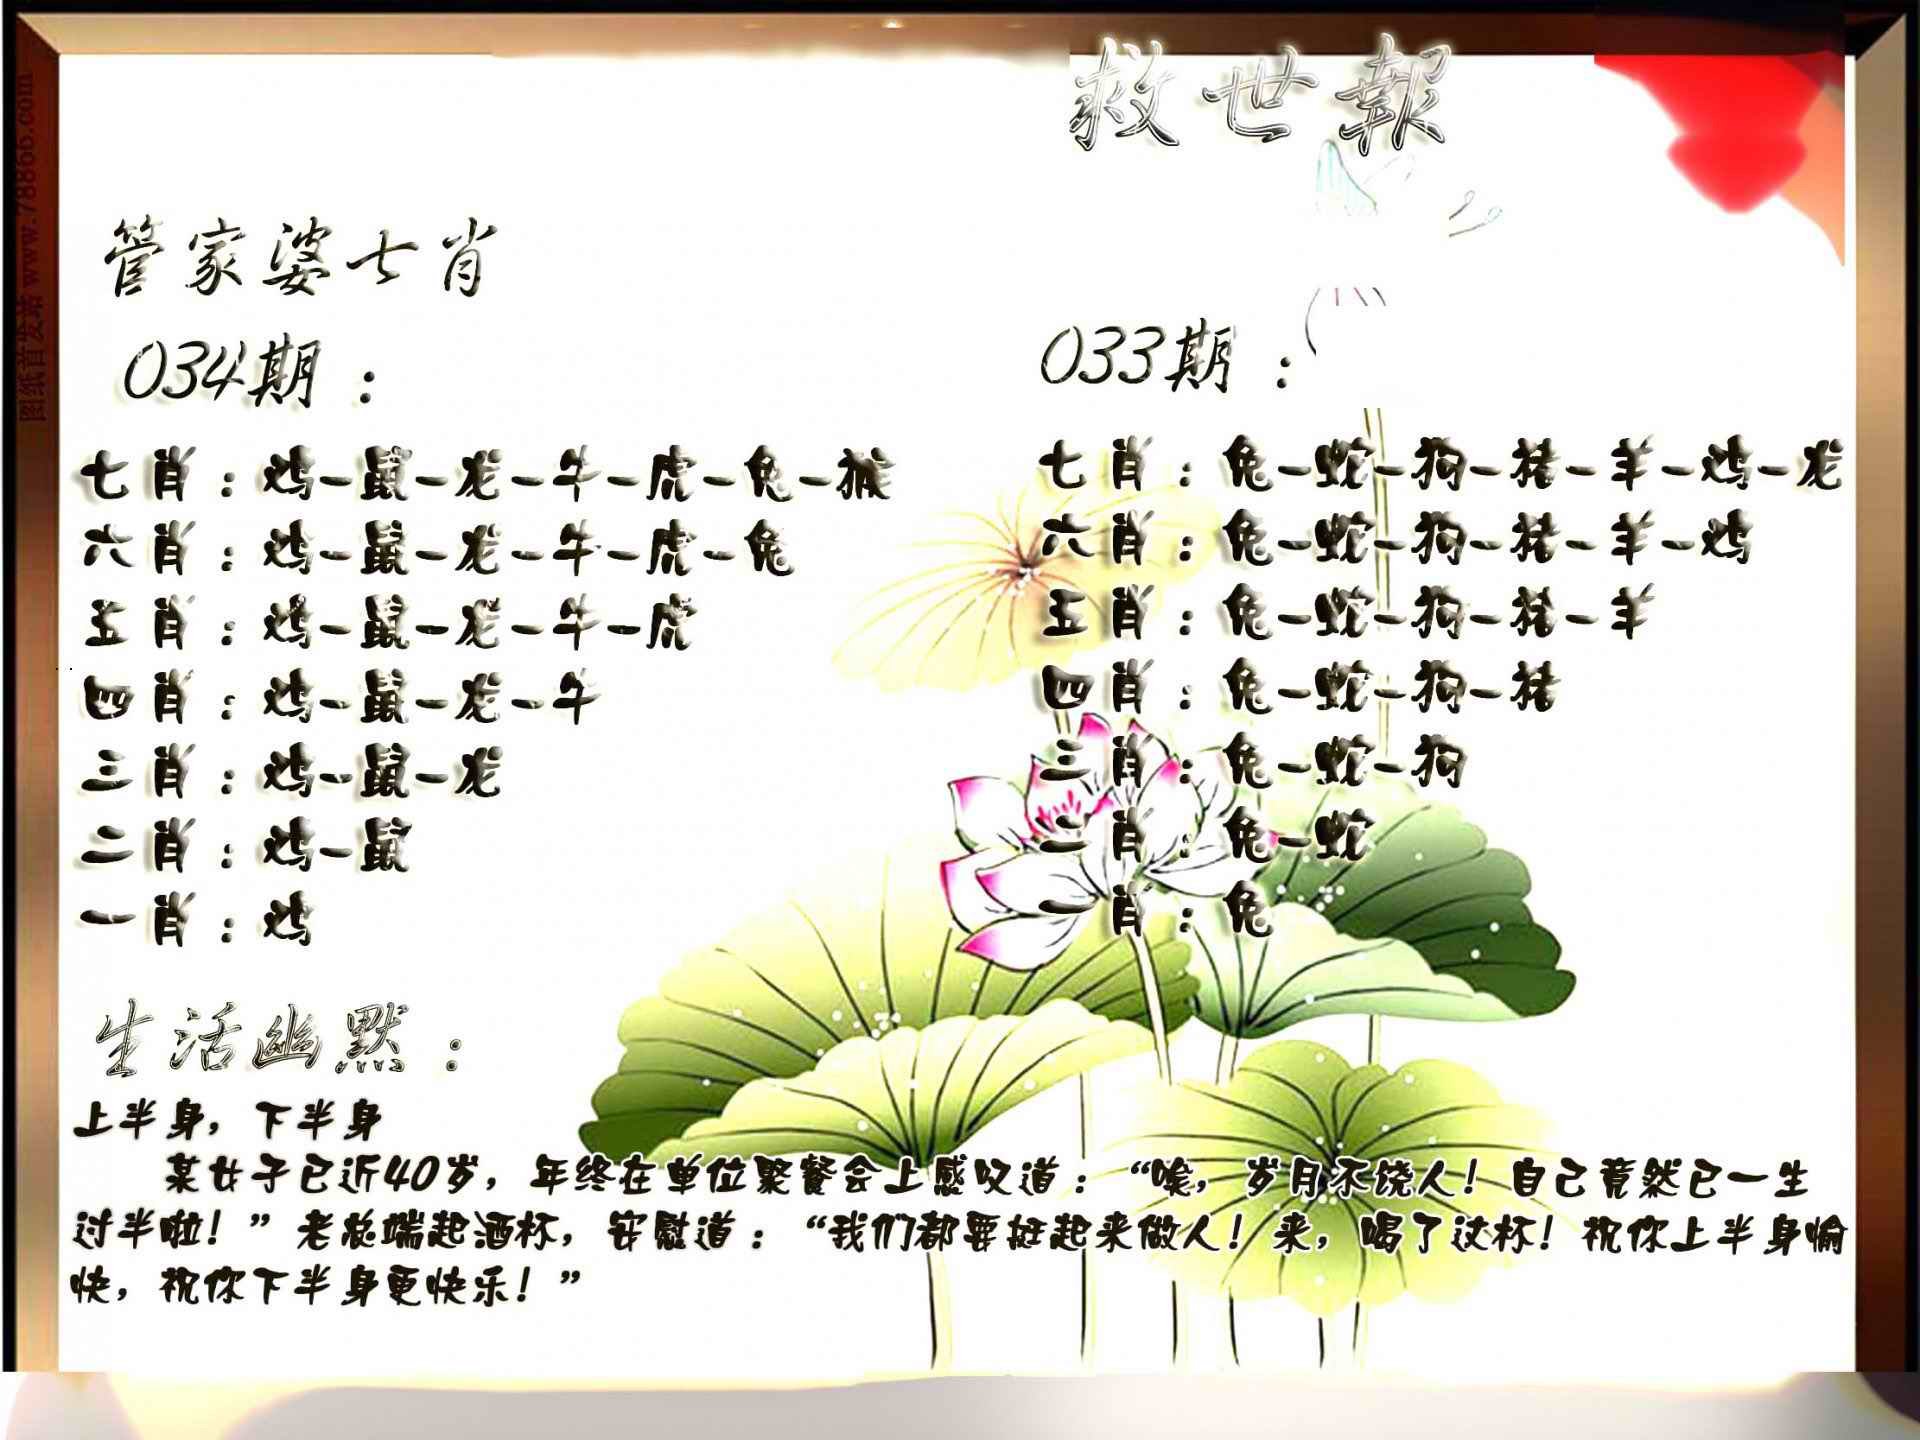 救世報
管家婆七肖
034期：
七肖：鸡-鼠-龙-牛-虎-兔-猴
六肖：鸡-鼠-龙-牛-虎-兔
五肖：鸡-鼠-龙-牛-虎
四肖：鸡-鼠-龙-牛
三肖：鸡-鼠-龙
二肖：鸡-鼠
一肖：鸡
033期：
七肖：兔-蛇-狗-猪-羊-鸡-龙
六肖：兔-蛇-狗-猪-羊-鸡
五肖：兔-蛇-狗-猪-羊
四肖：兔-蛇-狗-猪
三肖：兔-蛇-狗
二肖：兔-蛇
一肖：兔
生活幽默：
上半身，下半身
某女子已近40岁，年终在单位聚餐会上感叹道：“唉，岁月不饶人！自己竟然已一生
过半啦！”老总端起酒杯，安慰道：“我们都要挺起来做人！来，喝了这杯！祝你上半身愉
快，祝你下半身更快乐！”
图纸首发站 www.78866.com